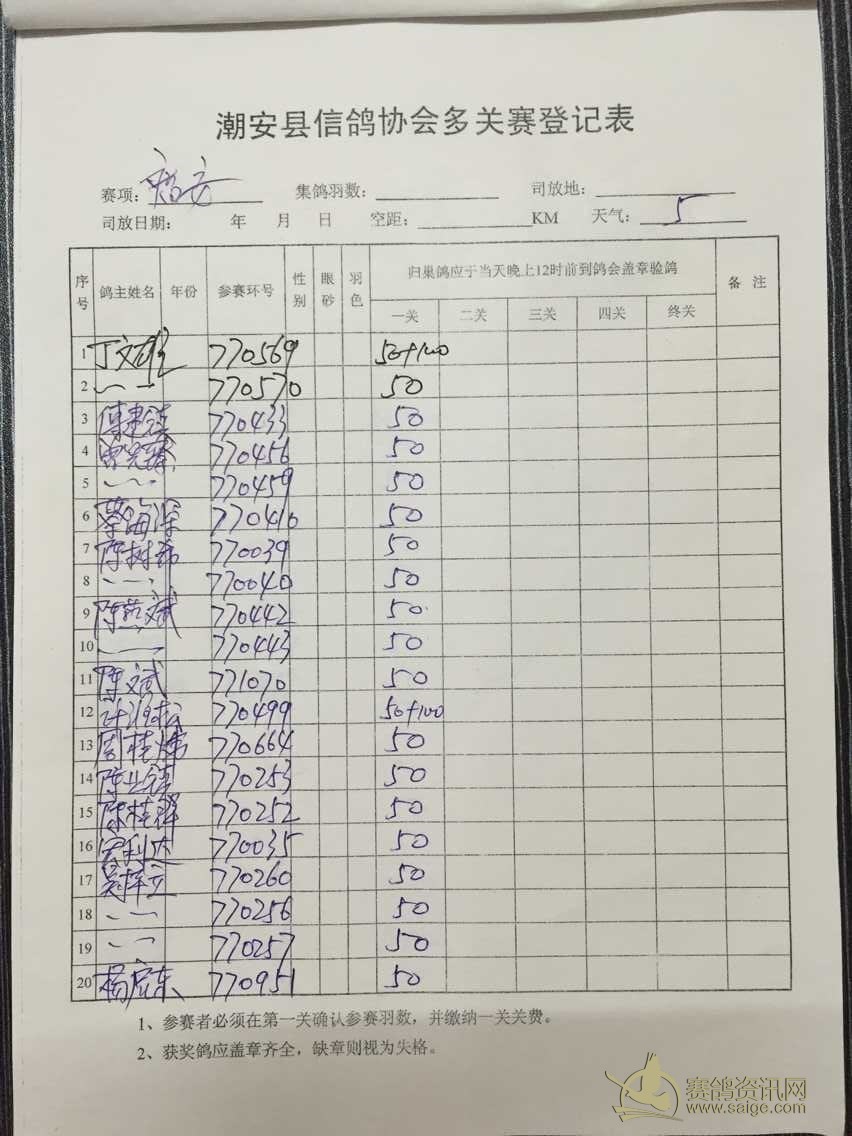 潮安县信鸽协会多关赛登记表
赛项: 集鸽羽数: 司放地:
司放日期: 年 月 日 空距: KM 天气: 5
序号 鸽主姓名 年份 参赛环号 性别 眼砂 羽色 归巢鸽应于当天晚上12时前到鸽会盖章验鸽 备 注
一关 二关 三关 四关 终关
1 丁文雄 770569 50+100
2 770570 50
3 770433 50
4 770456 50
5 770459 50
6 蔡海深 770410 50
7 陈树 770039 50
8 770040 50
9 陈 斌 770442 50
10 770443 50
11 陈文斌 771070 50
12 松 770499 50+100
13 周桂 770664 50
14 陈 770253 50
15 陈桂 770252 50
16 利 770035 50
17 吴 770260 50
18 770256 50
19 770257 50
20 杨 东 770951 50
1、参赛者必须在第一关确认参赛羽数，并缴纳一关关费。
2、获奖鸽应盖章齐全，缺章则视为失格。
赛鸽资讯网
www.saige.com